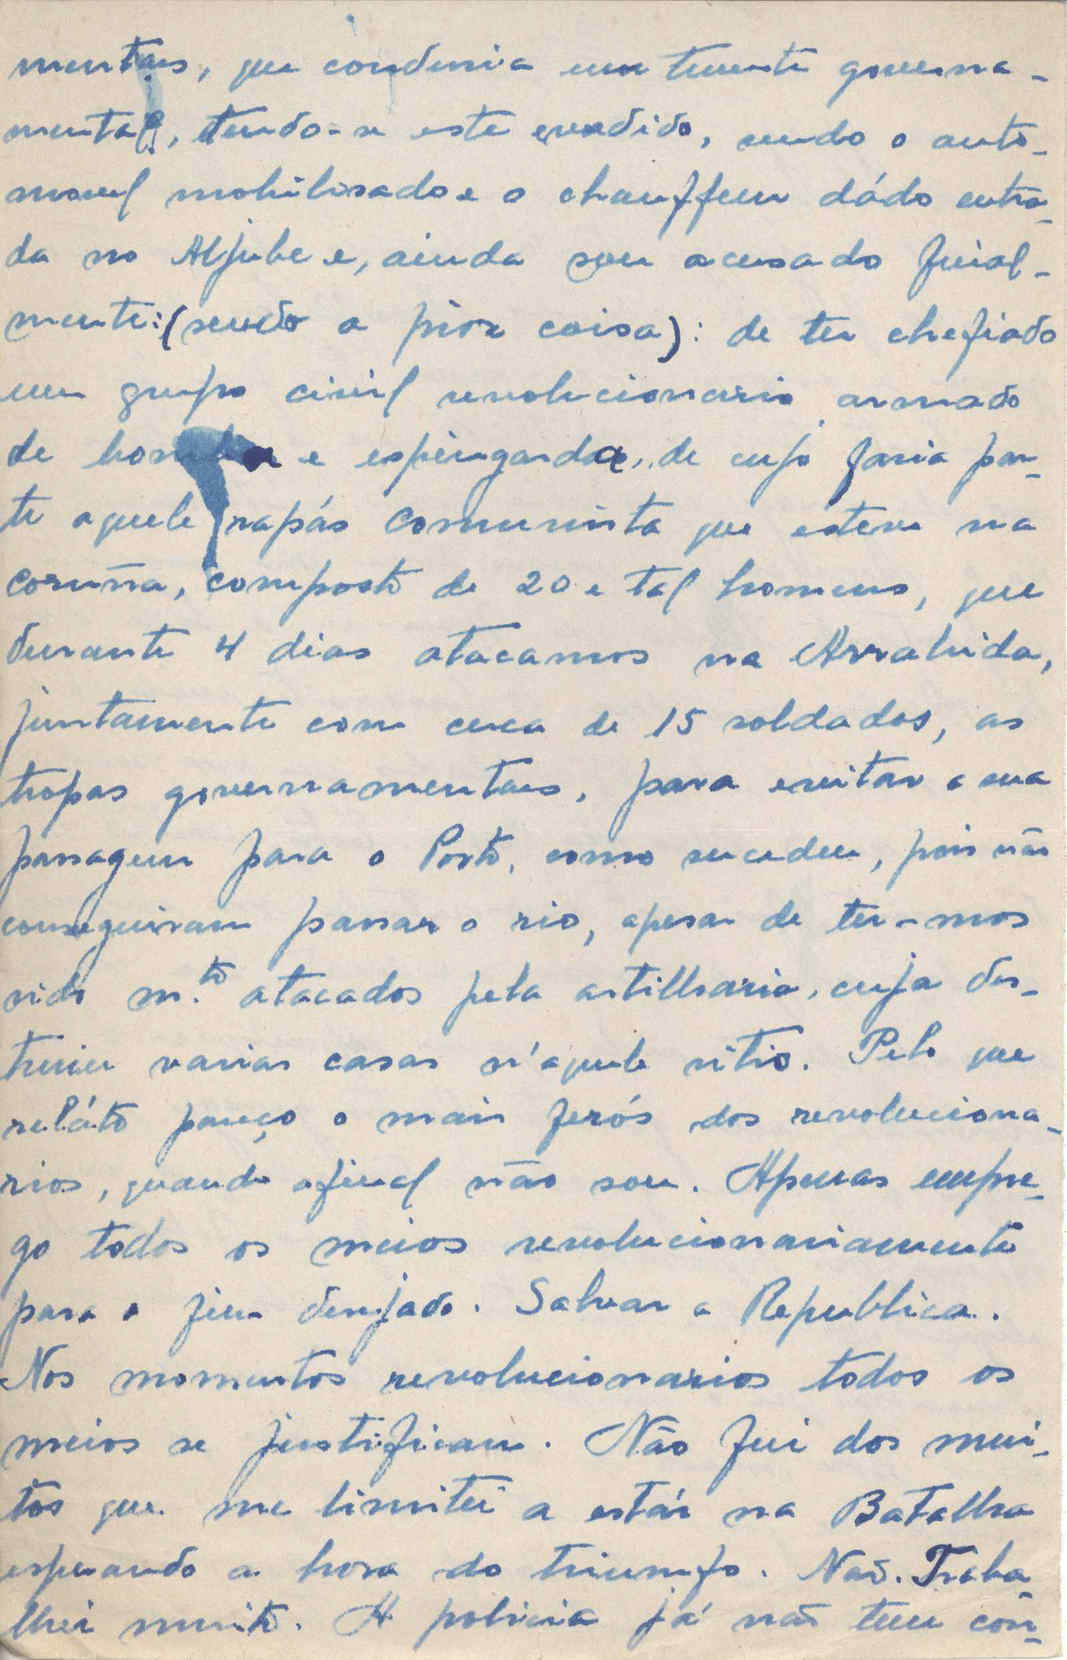 mentaes, que condusia um tenente governa-
mental, tendo-se este evadido, sendo o auto-
movel mobilisado e o chauffeur dádo entra-
da no Aljube e, ainda sou acusado final-
mente: (sendo a piór coisa): de ter chefiado
um grupo civil revolucionario armado
de bombas e espingardas, de cujo faria par-
te aquele rapás comunista que esteve na
coruña, composto de 20 e tal homens, que
durante 4 dias atacamos na Arrabida,
juntamente com cerca de 15 soldados, as
tropas governamentaes, para evitar a sua
passagem para o Porto, como sucedeu, pois não
conseguiram passar o rio, apesar de ter-mos
sido m.to atacados pela artilharia, cuja des-
truiu varias casas n'aquele sitio. Pelo que
reláto pareço o mais ferós dos revoluciona-
rios, quando afinal não sou. Apenas empre-
go todos os meios revolucionariamente
para o fim desejado. Salvar a Republica.
Nos momentos revolucionarios todos os
meios se justificam. Não fui dos mui-
tos que me limitei a estár na Batalha
esperando a hora do triunfo. Não. Traba-
lhei muito. A policia já não tem con-